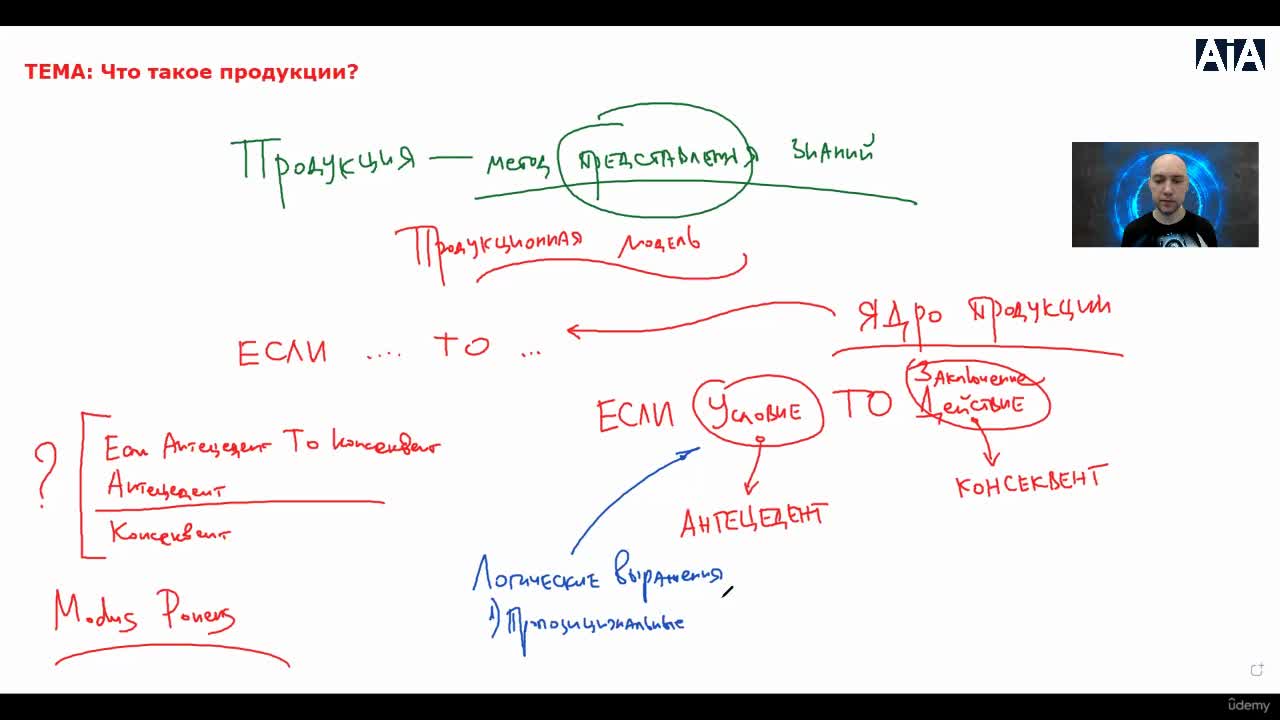 ТЕМА: Что такое продукции?
AiA
Продукция — метод представления знаний
Продукционная модель
Ядро продукции
ЕСЛИ .... ТО ...
ЕСЛИ Условие ТО Заключение
Действие
? Если Антецедент То Консеквент
Антецедент
Консеквент
АНТЕЦЕДЕНТ
КОНСЕКВЕНТ
Логические выражения
1) Пропозициональные
Modus Ponens
ûdemy